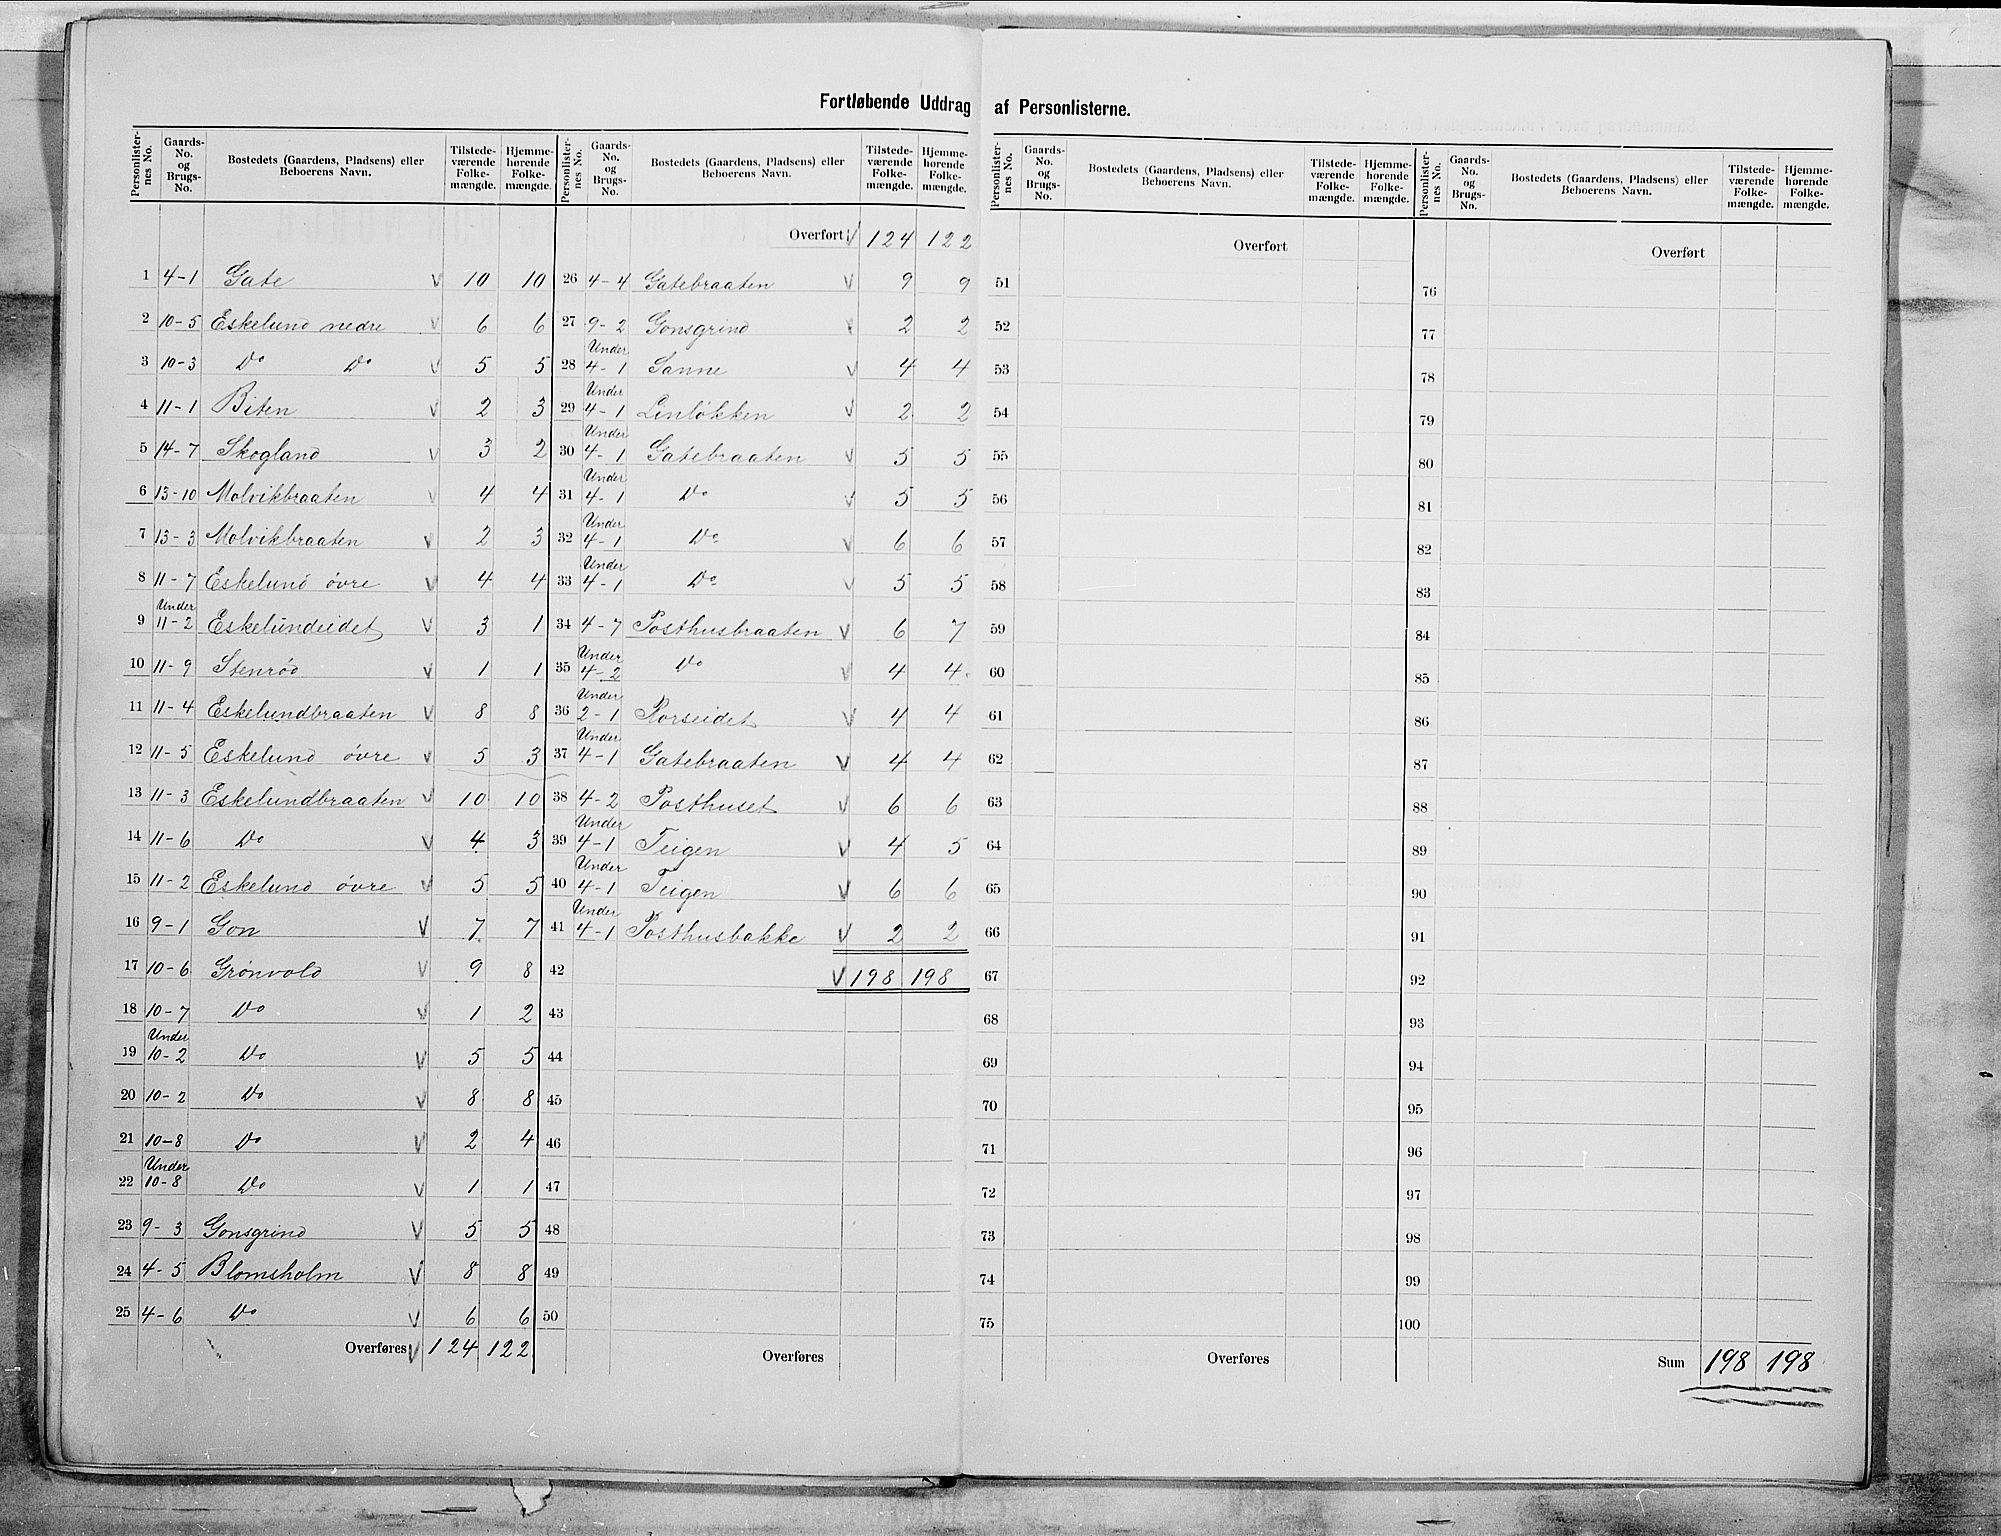 Fortløbende Uddrag af Personlisterne.
Personlister-nes No. Gaards-No. og Brugs-No. Bostedets (Gaardens, Pladsens) eller Beboerens Navn. Tilstede-værende Folke-mængde. Hjemme-hørende Folke-mængde.
1 4-1 Gate V 10 10
2 10-5 Eskelund nedre V 6 6
3 10-3 Do Do V 5 5
4 11-1 Biten V 2 3
5 14-7 Skogland V 3 2
6 13-10 Molvikbraaten V 4 4
7 13-3 Molvikbraaten V 2 3
8 11-7 Eskelund övre V 4 4
9 Under 11-2 Eskelundeidet V 3 1
10 11-9 Stenröd V 1 1
11 11-4 Eskelundbraaten V 8 8
12 11-5 Eskelund övre V 5 3
13 11-3 Eskelundbraaten V 10 10
14 11-6 Do V 4 3
15 11-2 Eskelund övre V 5 5
16 9-1 Gon V 7 7
17 10-6 Grönvold V 9 8
18 10-7 Do V 1 2
19 Under 10-2 Do V 5 5
20 10-2 Do V 8 8
21 10-8 Do V 2 4
22 Under 10-8 Do V 1 1
23 9-3 Gonsgrind V 5 5
24 4-5 Blomsholm V 8 8
25 4-6 Do V 6 6
Overføres V 124 122
Personlister-nes No. Gaards-No. og Brugs-No. Bostedets (Gaardens, Pladsens) eller Beboerens Navn. Tilstede-værende Folke-mængde. Hjemme-hørende Folke-mængde.
Overført V 124 122
26 4-4 Gatebraaten V 9 9
27 9-2 Gonsgrind V 2 2
28 Under 4-1 Sanne V 4 4
29 Under 4-1 Linlökken V 2 2
30 Under 4-1 Gatebraaten V 5 5
31 Under 4-1 Do V 5 5
32 Under 4-1 Do V 6 6
33 Under 4-1 Do V 5 5
34 4-7 Posthusbraaten V 6 7
35 Under 4-2 Do V 4 4
36 Under 2-1 Porseidet V 4 4
37 Under 4-1 Gatebraaten V 4 4
38 4-2 Posthuset V 6 6
39 Under 4-1 Teigen V 4 5
40 Under 4-1 Teigen V 6 6
41 Under 4-1 Posthusbakke V 2 2
42 V 198 198
43
44
45
46
47
48
49
50
Overføres
Personlister-nes No. Gaards-No. og Brugs-No. Bostedets (Gaardens, Pladsens) eller Beboerens Navn. Tilstede-værende Folke-mængde. Hjemme-hørende Folke-mængde.
Overført
51
52
53
54
55
56
57
58
59
60
61
62
63
64
65
66
67
68
69
70
71
72
73
74
75
Overføres
Personlister-nes No. Gaards-No. og Brugs-No. Bostedets (Gaardens, Pladsens) eller Beboerens Navn. Tilstede-værende Folke-mængde. Hjemme-hørende Folke-mængde.
Overført
76
77
78
79
80
81
82
83
84
85
86
87
88
89
90
91
92
93
94
95
96
97
98
99
100
Sum 198 198